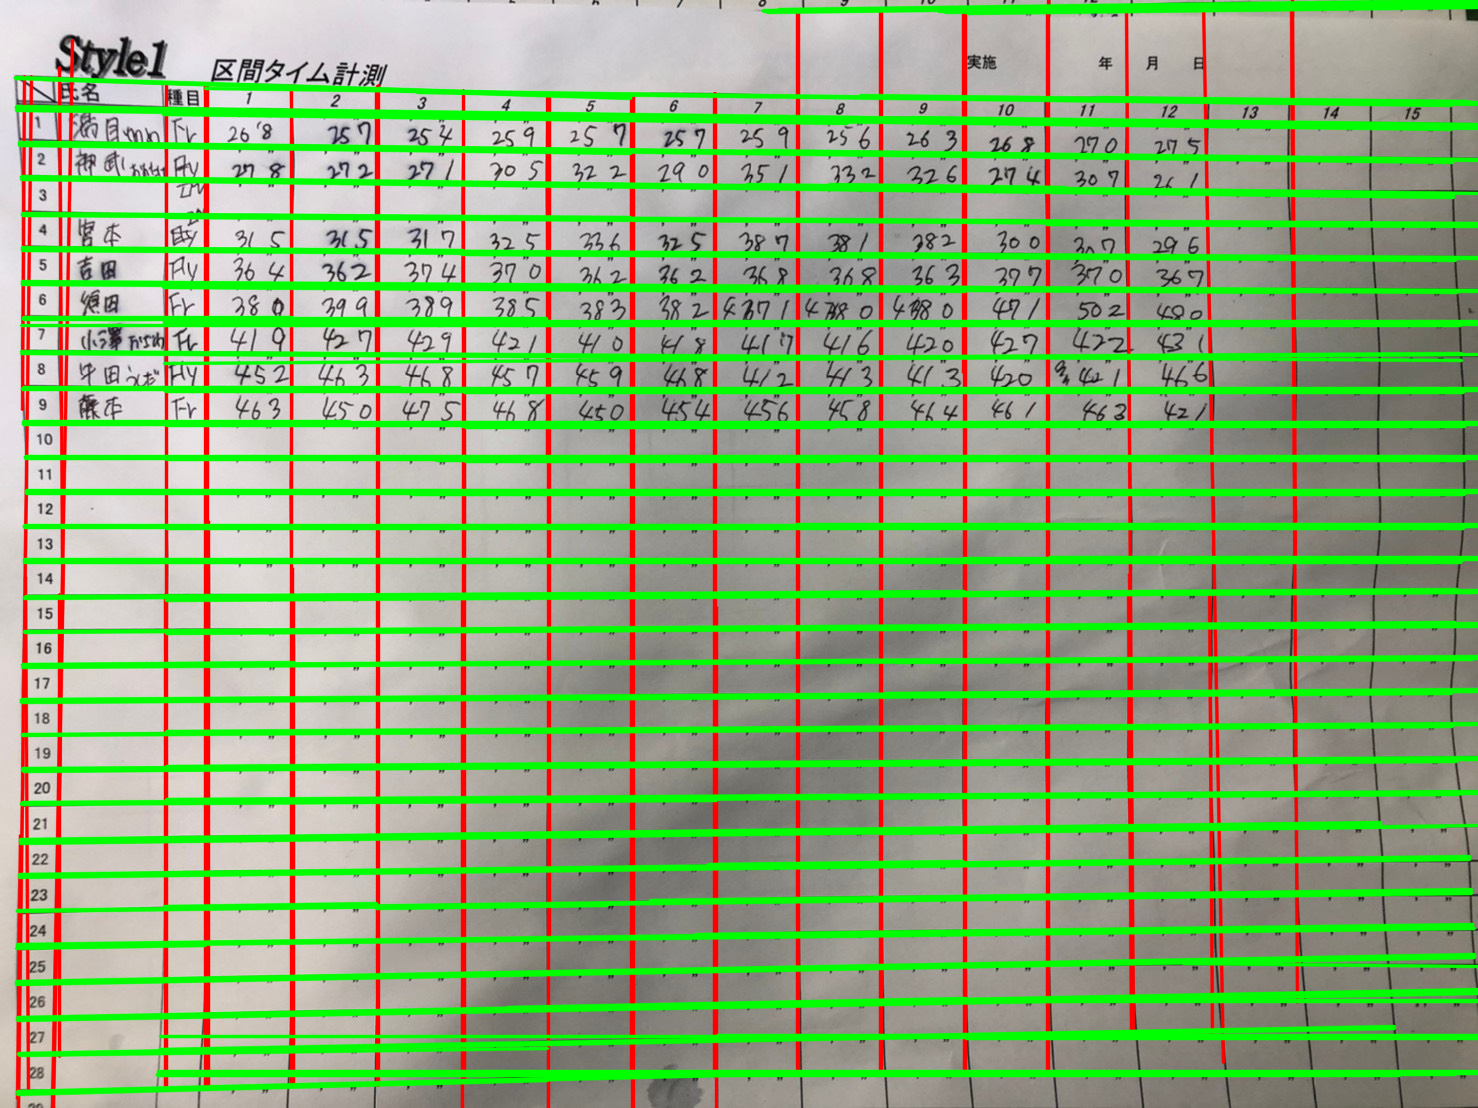 Style1 区間タイム計測 実施 年 月 日
氏名 種目 1 2 3 4 5 6 7 8 9 10 11 12 13 14 15
1 Fr 26 8 25 7 25 4 25 9 25 7 25 7 25 9 25 6 26 3 26 8 27 0 27 5
2 Fly 27 8 27 2 27 1 30 5 32 2 29 0 35 1 33 2 32 6 27 4 30 7 26 1
3
4 宮本 31 5 31 5 31 7 32 5 33 6 32 5 38 7 38 1 38 2 30 0 30 7 29 6
5 吉田 Fly 36 4 36 2 37 4 37 0 36 2 36 2 36 8 36 8 36 3 37 7 37 0 36 7
6 須田 Fr 38 0 39 9 38 9 38 5 38 3 38 2 47 1 50 2 48 0
7 小澤 Fr 41 9 42 7 42 9 42 1 41 0 41 8 41 7 41 6 42 0 42 7 42 2 43 1
8 牛田 Fly 45 2 46 3 46 8 45 7 45 9 46 8 41 2 41 3 41 3 42 0 42 1 46 6
9 藤本 Fr 46 3 45 0 47 5 46 8 45 0 45 4 45 6 45 8 46 4 46 1 46 3 42 1
10
11
12
13
14
15
16
17
18
19
20
21
22
23
24
25
26
27
28